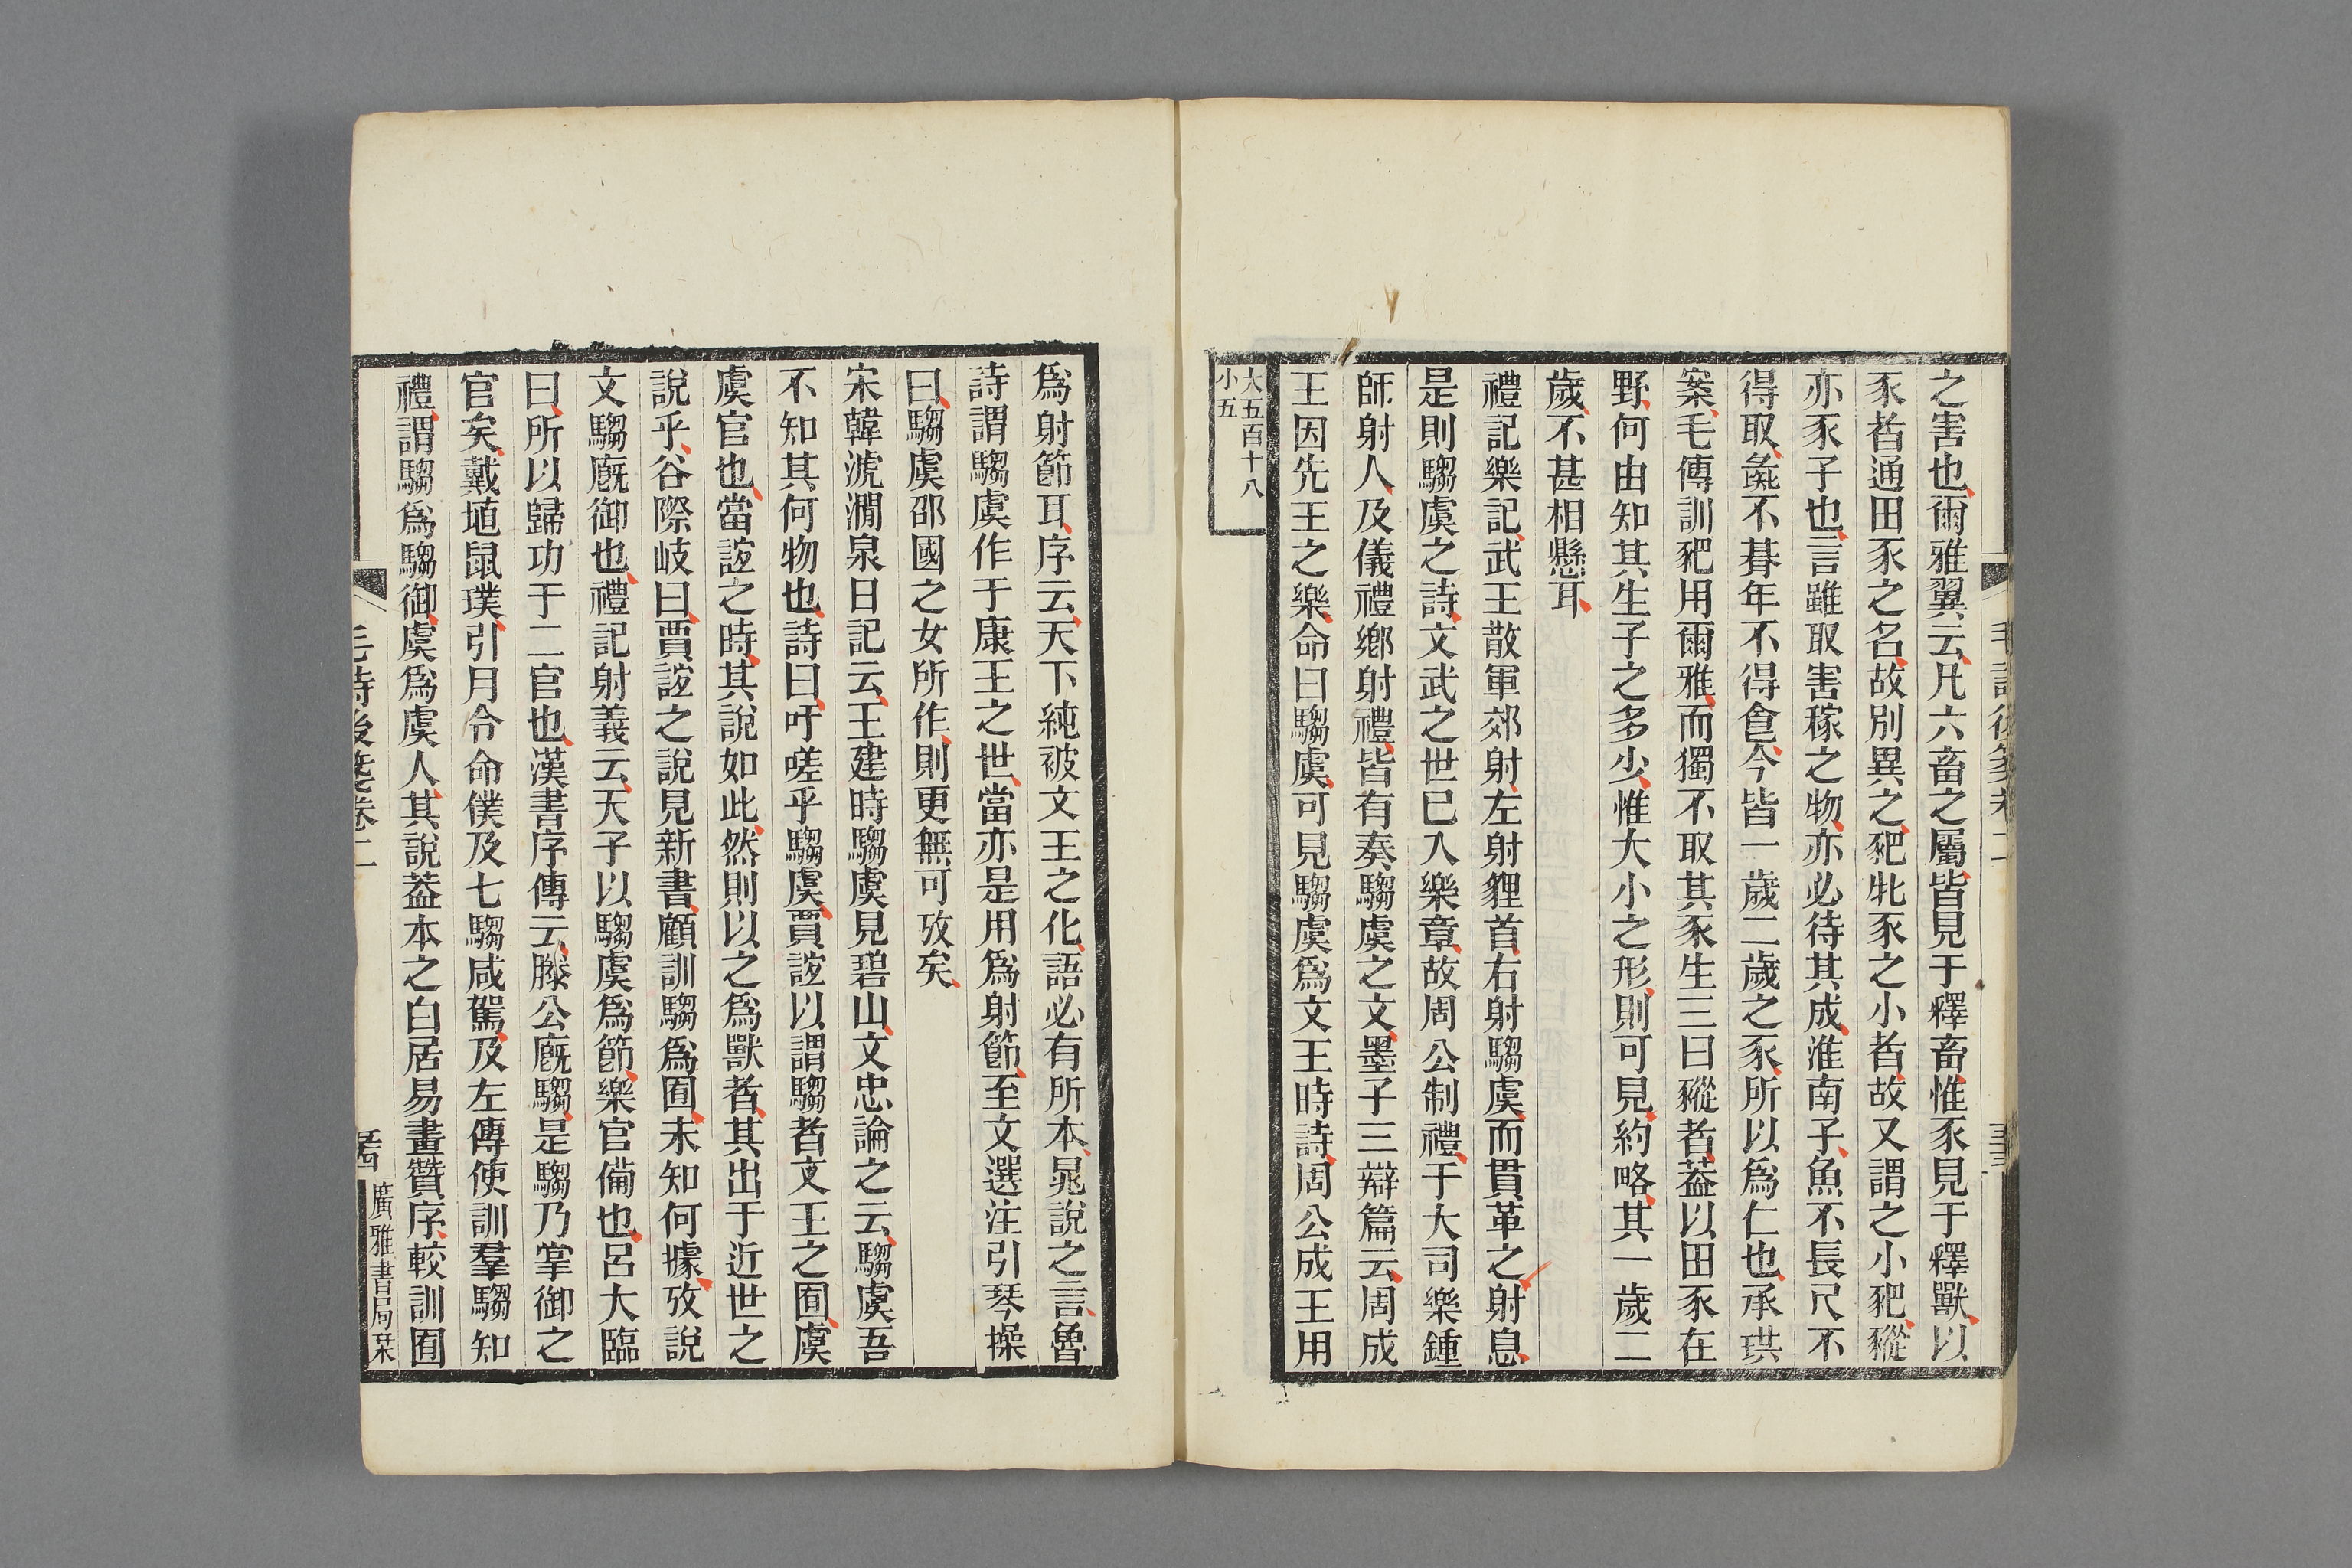 之害也爾雅翼云凡六畜之屬皆見于釋畜惟豕見于釋獸以
豕者通田豕之名故別異之豝牝豕之小者故又謂之小豝豵
亦豕子也言雖取害稼之物亦必待其成淮南子魚不長尺不
得取彘不朞年不得食今皆一歲二歲之豕所以爲仁也承珙
案毛傳訓豝用爾雅而獨不取其豕生三曰豵者葢以田豕在
野何由知其生子之多少惟大小之形則可見約略其一歲二
歲不甚相懸耳
禮記樂記武王散軍郊射左射貍首右射騶虞而貫革之射息
是則騶虞之詩文武之世已入樂章故周公制禮于大司樂鍾
師射人及儀禮鄉射禮皆有奏騶虞之文墨子三辯篇云周成
王因先王之樂命曰騶虞可見騶虞爲文王時詩周公成王用
大五百十八
小五
爲射節耳序云天下純被文王之化語必有所本晁說之言魯
詩謂騶虞作于康王之世當亦是用爲射節至文選注引琴操
曰騶虞邵國之女所作則更無可攷矣
宋韓淲澗泉日記云王建時騶虞見碧山文忠論之云騶虞吾
不知其何物也詩曰吁嗟乎騶虞賈誼以謂騶者文王之囿虞
虞官也當誼之時其說如此然則以之爲獸者其出于近世之
說乎谷際岐曰賈誼之說見新書顧訓騶爲囿未知何據攷說
文騶廐御也禮記射義云天子以騶虞爲節樂官備也呂大臨
曰所以歸功于二官也漢書序傳云滕公廐騶是騶乃掌御之
官矣戴埴鼠璞引月令命僕及七騶咸駕及左傳使訓羣騶知
禮謂騶爲騶御虞爲虞人其說葢本之白居易畫贊序較訓囿
毛詩後箋卷二
廣雅書局栞